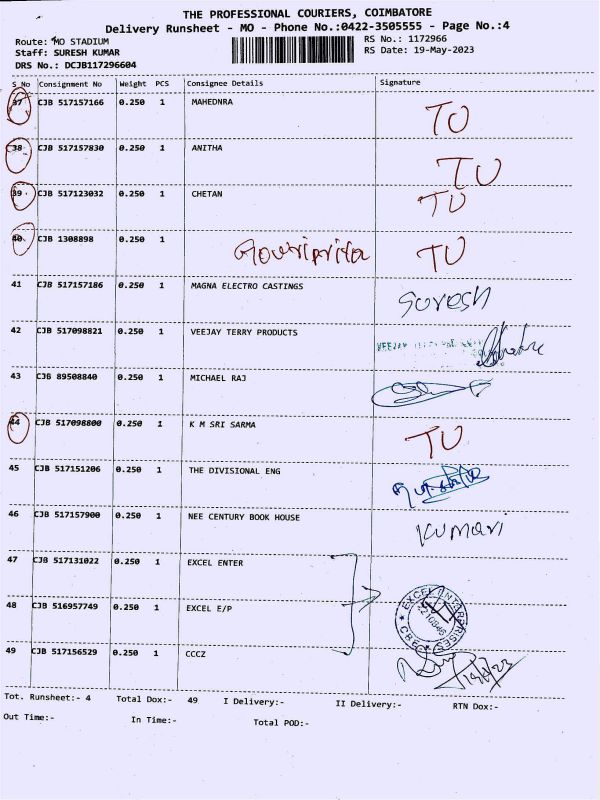 THE PROFESSIONAL COURIERS, COIMBATORE
Delivery Runsheet - MO - Phone No.:0422-3505555 - Page No.:4
Route: MO STADIUM
RS No.: 1172966
Staff: SURESH KUMAR
RS Date: 19-May-2023
DRS No.: DCJB117296604
S No Consignment No Weight PCS Consignee Details Signature
37 CJB 517157166 0.250 1 MAHEDNRA TU
38 CJB 517157830 0.250 1 ANITHA TU
39 CJB 517123032 0.250 1 CHETAN TU
40 CJB 1308898 0.250 1 Gouripriya TU
41 CJB 517157186 0.250 1 MAGNA ELECTRO CASTINGS Suresh
42 CJB 517098821 0.250 1 VEEJAY TERRY PRODUCTS VEEJAY
43 CJB 89508840 0.250 1 MICHAEL RAJ
44 CJB 517098800 0.250 1 K M SRI SARMA TU
45 CJB 517151206 0.250 1 THE DIVISIONAL ENG
46 CJB 517157900 0.250 1 NEE CENTURY BOOK HOUSE Kumari
47 CJB 517131022 0.250 1 EXCEL ENTER
48 CJB 516957749 0.250 1 EXCEL E/P EXCEL ENTERPRISES CBE
49 CJB 517156529 0.250 1 CCCZ
Tot. Runsheet:- 4 Total Dox:- 49 I Delivery:- II Delivery:- RTN Dox:-
Out Time:- In Time:- Total POD:-